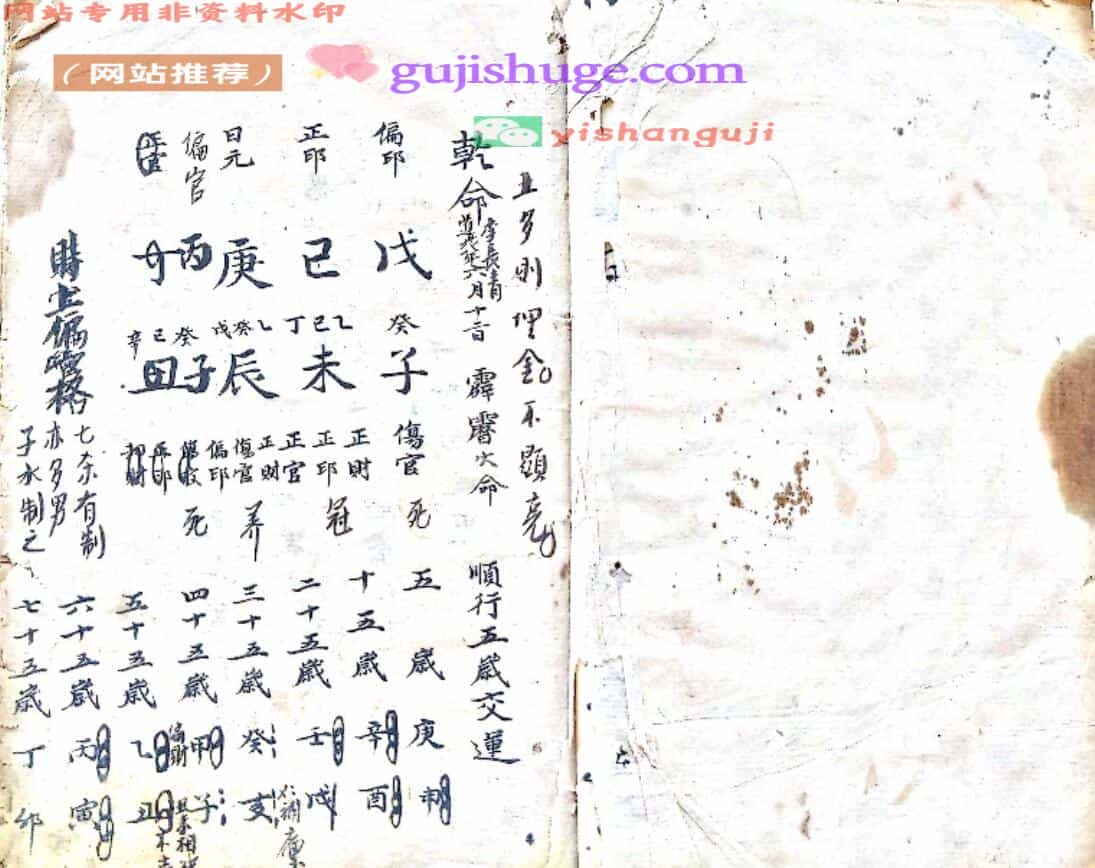 网站专用非资料水印
(网站推荐)
gujishuge.com
yishanguji
土多則埋金不顯亮
乾命
李長青
六月十
霹靂火命
順行五歲交運
偏印
戊
癸
子
傷官
死
正印
己
丁己乙
未
正財
正印
正官
冠
日元
庚
戊癸乙
辰
正財
傷官
偏印
养
偏官
丙
癸
子
死
己
辛
丑
七杀有制
亦多男
子水制之
五歲
十五歲
二十五歲
三十五歲
四十五歲
五十五歲
六十五歲
七十五歲
庚申
辛酉
壬戌
癸亥
甲子
乙丑
丙寅
丁卯
偏財
補廩